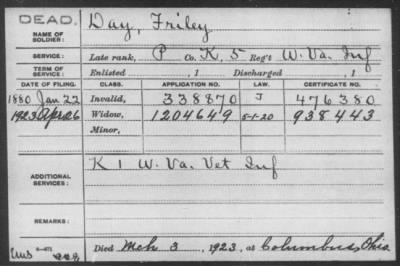 DEAD.
NAME OF SOLDIER: Day, Friley
SERVICE: Late rank, P Co. K, 5 Reg't W. Va. Inf
TERM OF SERVICE: Enlisted , 1 Discharged , 1
DATE OF FILING. CLASS. APPLICATION NO. LAW. CERTIFICATE NO.
1880 Jan 22 Invalid, 338870 J 476380
1923 Apr 26 Widow, 1204649 5-1-20 938443
Minor,
ADDITIONAL SERVICES: K 1 W. Va. Vet Inf
REMARKS:
Died Mch 3, 1923, at Columbus, Ohio